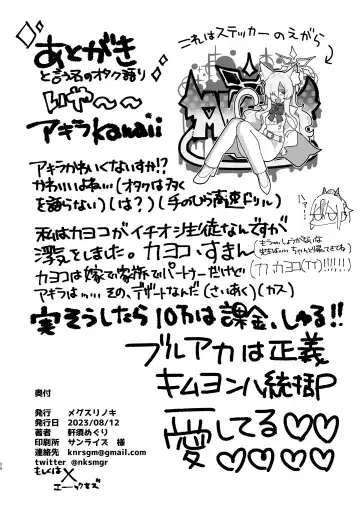 あとがき
と言う名のオタク語り
これはステッカーのえがら
いや〜〜
アキラkawaii
アキラかわいくないすか!?
かわいいよね…(オタクは多く
を語らない)(は?)(手のひら高速ドリル)
私はカヨコがイチオシ生徒なんですが
浮気をしました。カヨコ、すまん
(もう…しょうがないな
先生は…ちゃんと帰ってきてね)
カヨコは嫁で家族でパートナーだけど
(カ、カヨコ(TT)!!!!!!)
アキラは…、その、デザートなんだ(さいあく)(カス)
実そうしたら10万は課金、しゅる!!
ブルアカは正義
キムヨンハ統括P
愛してる♡♡
♡♡♡♡
奥付
発行 メグスリノキ
発行日 2023/08/12
著者 軒須めぐり
印刷所 サンライズ 様
連絡先 knrsgm@gmail.com
twitter @nksmgr
もしくはX
エックス